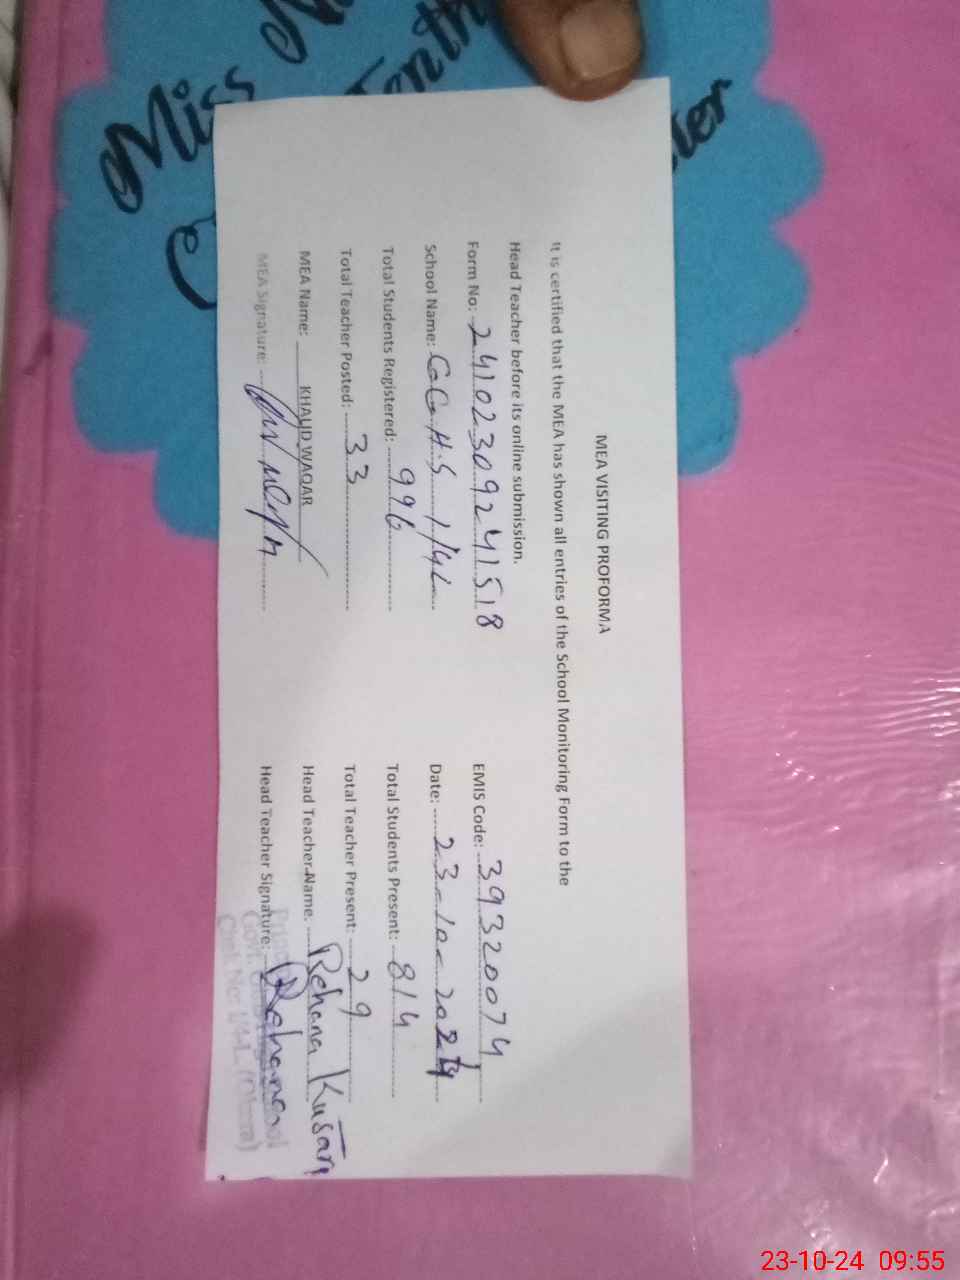 Miss
Tenth
MEA VISITING PROFORMA
It is certified that the MEA has shown all entries of the School Monitoring Form to the
Head Teacher before its online submission.
Form No: 241023092241518 EMIS Code: 39320074
School Name: GGHS 1/4L Date: 23-10-2024
Total Students Registered: 996 Total Students Present: 814
Total Teacher Posted: 33 Total Teacher Present: 29
MEA Name: KHALID WAQAR Head Teacher Name: Rehana Kusar
MEA Signature: Head Teacher Signature: Rehana
23-10-24 09:55